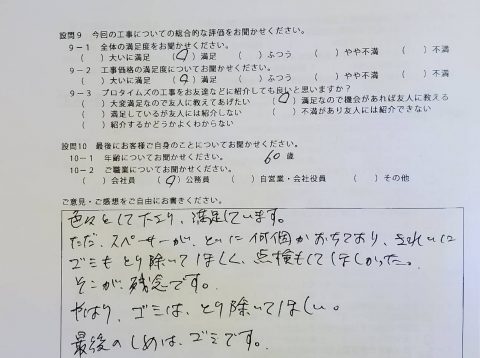 設問9 今回の工事についての総合的な評価をお聞かせください。
9-1 全体の満足度をお聞かせください。
( )大いに満足 (○)満足 ( )ふつう ( )やや不満 ( )不満
9-2 工事価格の満足度についてお聞かせください。
( )大いに満足 (○)満足 ( )ふつう ( )やや不満 ( )不満
9-3 プロタイムズの工事をお友達などに紹介しても良いと思いますか?
( )大変満足なので友人に教えてあげたい (○)満足なので機会があれば友人に教える
( )満足しているが友人には紹介しない ( )不満があり友人には紹介できない
( )紹介するかどうかよくわからない
設問10 最後にお客様ご自身のことについてお聞かせください。
10-1 年齢についてお聞かせください。 60歳
10-2 ご職業についてお聞かせください。
( )会社員 (○)公務員 ( )自営業・会社役員 ( )その他
ご意見・ご感想をご自由にお書きください。
色々として下さり、満足しています。
ただ、スペーサーが、といに何個かおちており、きれいに
ゴミもとり除いてほしく、点検もしてほしかった。
そこが、残念です。
やはり、ゴミは、とり除いてほしい。
最後のしめは、ゴミです。